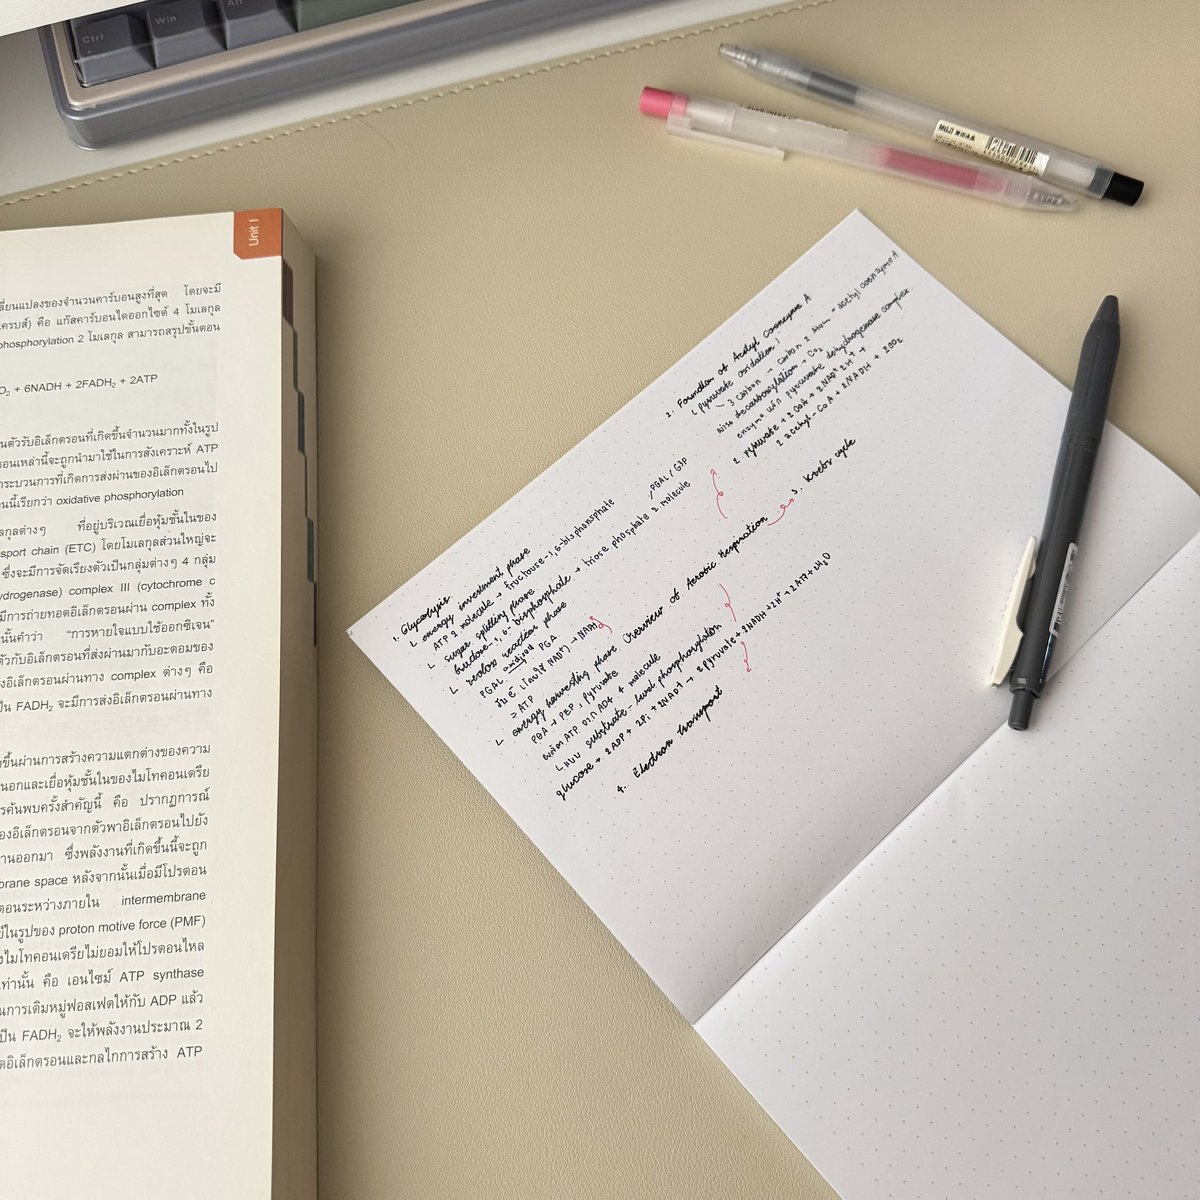 Ctrl
Win
Alt
MUJI 無印良品
Unit I
ลี่ยนแปลงของจำนวนคาร์บอนสูงที่สุด โดยจะมี
เครบส์) คือ แก๊สคาร์บอนไดออกไซด์ 4 โมเลกุล
phosphorylation 2 โมเลกุล สามารถสรุปขั้นตอน
O₂ + 6NADH + 2FADH₂ + 2ATP
นตัวรับอิเล็กตรอนที่เกิดขึ้นจำนวนมากทั้งในรูป
รอนเหล่านี้จะถูกนำมาใช้ในการสังเคราะห์ ATP
าระบวนการที่เกิดการส่งผ่านของอิเล็กตรอนไป
นนี้เรียกว่า oxidative phosphorylation
ลกุลต่างๆ ที่อยู่บริเวณเยื่อหุ้มชั้นในของ
sport chain (ETC) โดยโมเลกุลส่วนใหญ่จะ
ซึ่งจะมีการจัดเรียงตัวเป็นกลุ่มต่างๆ 4 กลุ่ม
ydrogenase) complex III (cytochrome c
มีการถ่ายทอดอิเล็กตรอนผ่าน complex ทั้ง
นั้นคำว่า “การหายใจแบบใช้ออกซิเจน”
ตัวกับอิเล็กตรอนที่ส่งผ่านมากับอะตอมของ
งอิเล็กตรอนผ่านทาง complex ต่างๆ คือ
ป็น FADH₂ จะมีการส่งอิเล็กตรอนผ่านทาง
าขึ้นผ่านการสร้างความแตกต่างของความ
นอกและเยื่อหุ้มชั้นในของไมโทคอนเดรีย
ารค้นพบครั้งสำคัญนี้ คือ ปรากฏการณ์
องอิเล็กตรอนจากตัวพาอิเล็กตรอนไปยัง
งานออกมา ซึ่งพลังงานที่เกิดขึ้นนี้จะถูก
brane space หลังจากนั้นเมื่อมีโปรตอน
ตอนระหว่างภายใน intermembrane
ยู่ในรูปของ proton motive force (PMF)
งไมโทคอนเดรียไม่ยอมให้โปรตอนไหล
เท่านั้น คือ เอนไซม์ ATP synthase
นการเติมหมู่ฟอสเฟตให้กับ ADP แล้ว
ป็น FADH₂ จะให้พลังงานประมาณ 2
ดอิเล็กตรอนและกลไกการสร้าง ATP
1. Glycolysis
energy investment phase
ATP 2 molecule → fructouse-1,6-bisphonsphate
sugar splitting phase
fructose-1,6-bisphosphate → triose phosphate 2 molecule
PGAL / G3P
redox reaction phase
PGAL oxidized PGA
energy harvesting phase
= ATP
PGA → PEP, Pyruvate
ผลิต ATP จาก ADP 4 molecule
แบบ substrate-level phosphorylation
glucose + 2ADP + 2Pi + 2NAD⁺ → 2pyruvate + 2NADH + 2H⁺ + 2ATP + 2H₂O
2. Formation of Acetyl Coenzyme A
(pyruvate oxidation)
3 carbon → carbon 2 atom = acetyl coenzyme A
decarboxylation → CO₂
enzyme pyruvate dehydrogenase complex
2 pyruvate + 2 CoA + 2NAD⁺
2 acetyl-CoA + 2NADH + 2CO₂
Overview of Aerobic Respiration
3. Krebs cycle
4. Electron transport